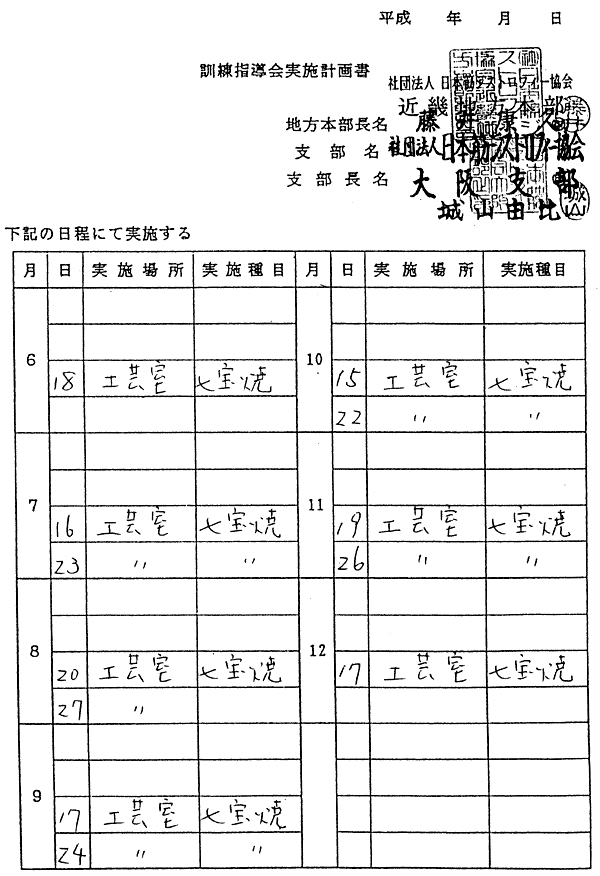 平成　年　月　日
訓練指導会実施計画書
社団法人 日本筋ヂストロフィー協会
近畿地方本部
地方本部長名 藤井康久
支部名 社団法人日本筋ヂストロフィー協会
支部長名 大阪支部
城山由比
下記の日程にて実施する
月 日 実施場所 実施種目 月 日 実施場所 実施種目
6 10
18 工芸室 七宝焼 15 工芸室 七宝焼
22 〃 〃
7 11
16 工芸室 七宝焼 19 工芸室 七宝焼
23 〃 〃 26 〃 〃
8 12
20 工芸室 七宝焼 17 工芸室 七宝焼
27 〃
9
17 工芸室 七宝焼
24 〃 〃